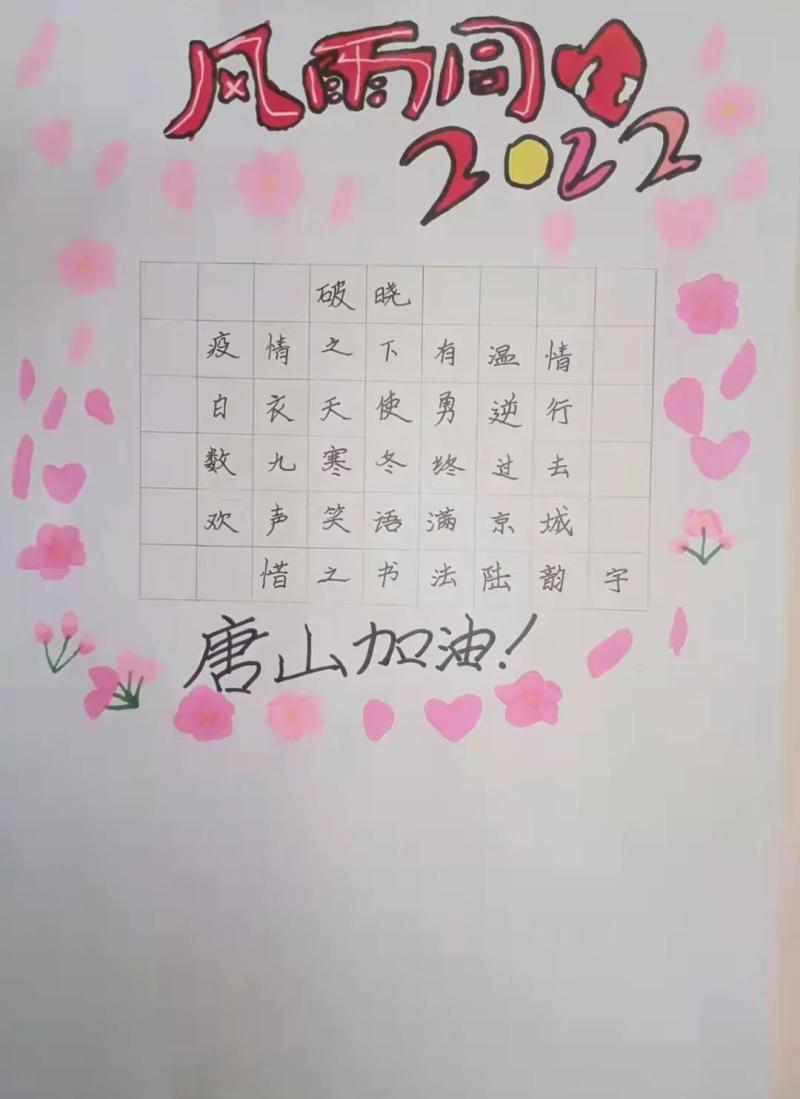 风雨同
2022
破晓
疫情之下有温情
白衣天使勇逆行
数九寒冬终过去
欢声笑语满京城
惜之书法陆韵宇
唐山加油!